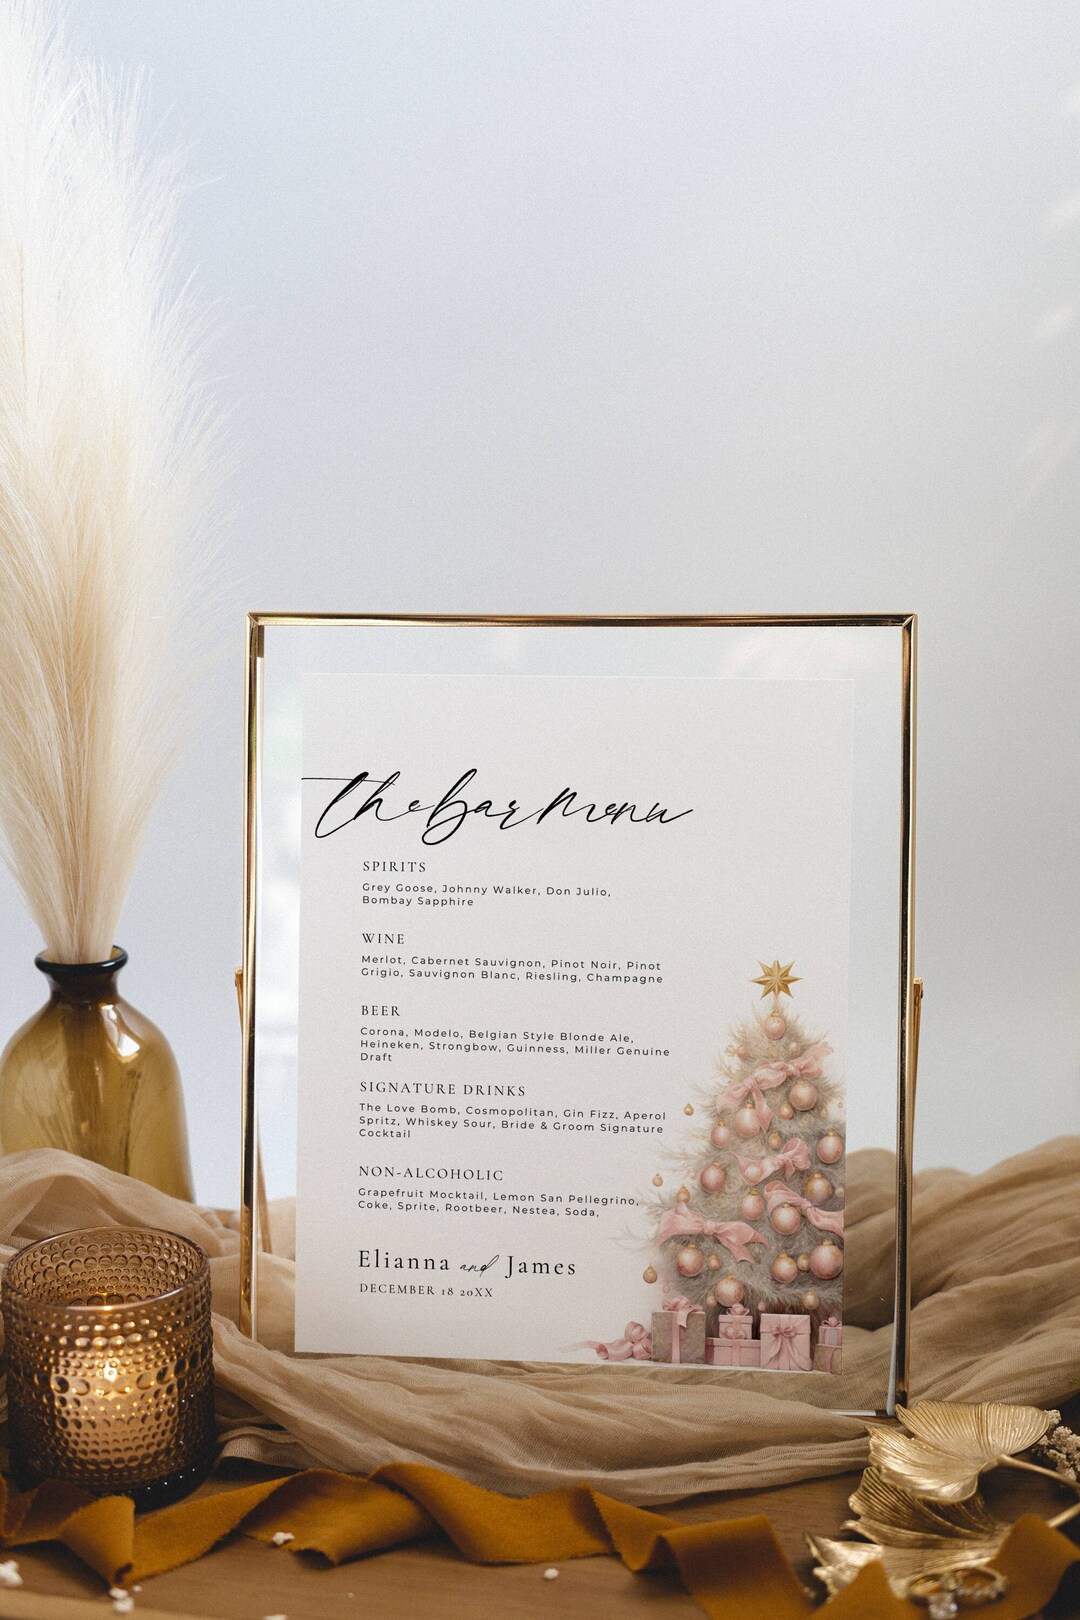 the bar menu
SPIRITS
Grey Goose, Johnny Walker, Don Julio,
Bombay Sapphire
WINE
Merlot, Cabernet Sauvignon, Pinot Noir, Pinot
Grigio, Sauvignon Blanc, Riesling, Champagne
BEER
Corona, Modelo, Belgian Style Blonde Ale,
Heineken, Strongbow, Guinness, Miller Genuine
Draft
SIGNATURE DRINKS
The Love Bomb, Cosmopolitan, Gin Fizz, Aperol
Spritz, Whiskey Sour, Bride & Groom Signature
Cocktail
NON-ALCOHOLIC
Grapefruit Mocktail, Lemon San Pellegrino,
Coke, Sprite, Rootbeer, Nestea, Soda,
Elianna and James
DECEMBER 18 20XX